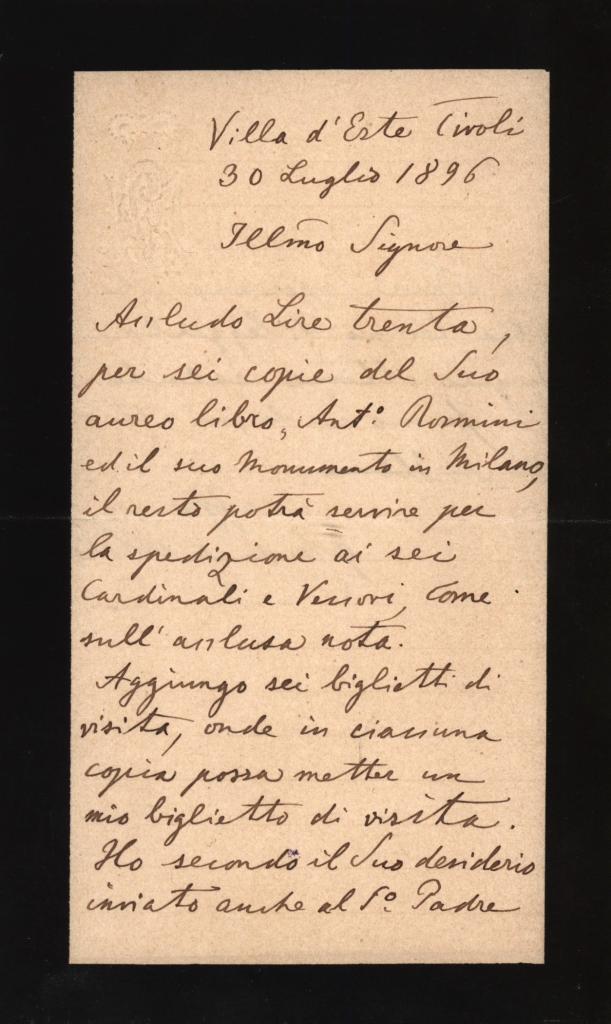 Villa d'Este Tivoli
30 Luglio 1896
Illm̄o Signore
Accludo Lire trenta,
per sei copie del Suo
aureo libro, Ant.º Rosmini
ed il suo Monumento in Milano,
il resto potrà servire per
la spedizione ai sei
Cardinali e Vescovi, come
sull' acclusa nota.
Aggiungo sei biglietti di
visita, onde in ciascuna
copia possa metter un
mio biglietto di visita.
Ho secondo il Suo desiderio
inviato anche al S.º Padre